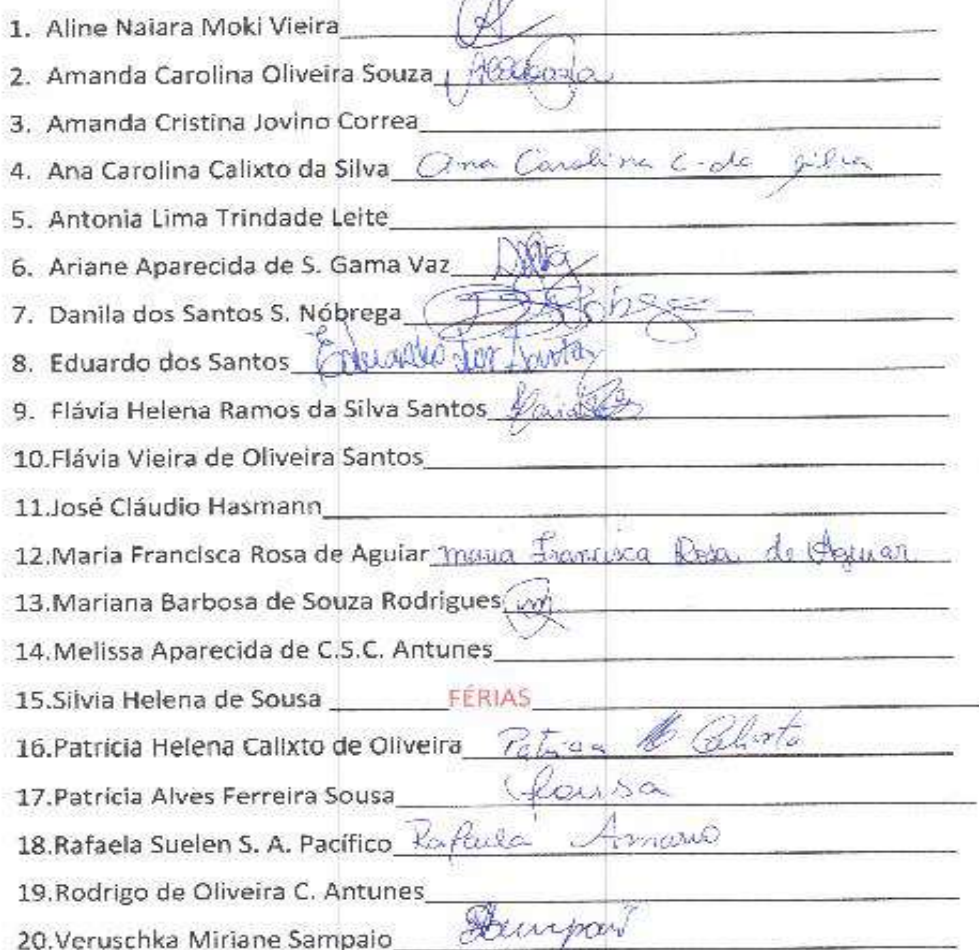 1. Aline Naiara Moki Vieira
2. Amanda Carolina Oliveira Souza
3. Amanda Cristina Jovino Correa
4. Ana Carolina Calixto da Silva Ana Carolina C. da Silva
5. Antonia Lima Trindade Leite
6. Ariane Aparecida de S. Gama Vaz
7. Danila dos Santos S. Nóbrega
8. Eduardo dos Santos Eduardo dos Santos
9. Flávia Helena Ramos da Silva Santos
10.Flávia Vieira de Oliveira Santos
11.José Cláudio Hasmann
12.Maria Francisca Rosa de Aguiar Maria Francisca Rosa de Aguiar
13.Mariana Barbosa de Souza Rodrigues
14.Melissa Aparecida de C.S.C. Antunes
15.Silvia Helena de Sousa FÉRIAS
16.Patrícia Helena Calixto de Oliveira Patricia Calixto
17.Patrícia Alves Ferreira Sousa Sousa
18.Rafaela Suelen S. A. Pacífico Rafaela Amaro
19.Rodrigo de Oliveira C. Antunes
20.Veruschka Miriane Sampaio